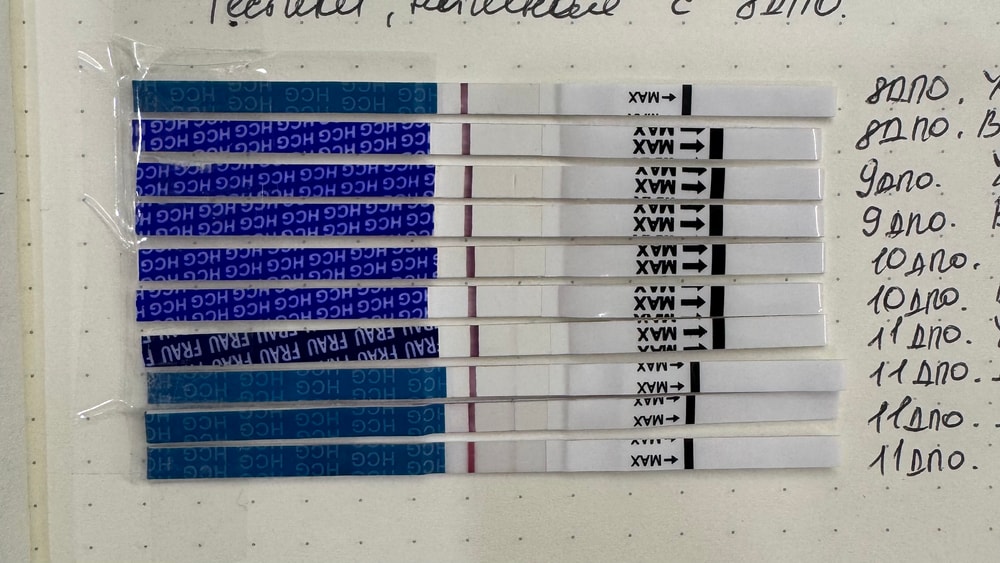 с 8ДПО.
HCG HCG HCG HCG MAX 8ДПО.
HCG HCG HCG HCG HCG HCG MAX 8ДПО. В
HCG HCG HCG HCG HCG HCG MAX 9ДПО.
HCG HCG HCG HCG HCG HCG MAX 9ДПО.
HCG HCG HCG HCG HCG HCG MAX 10ДПО.
HCG HCG HCG HCG HCG HCG MAX 10ДПО.
FRAU FRAU FRAU FRAU FRAU FRAU MAX 11ДПО.
HCG HCG HCG HCG MAX 11ДПО.
HCG HCG HCG HCG MAX 11ДПО.
HCG HCG HCG HCG MAX 11ДПО.